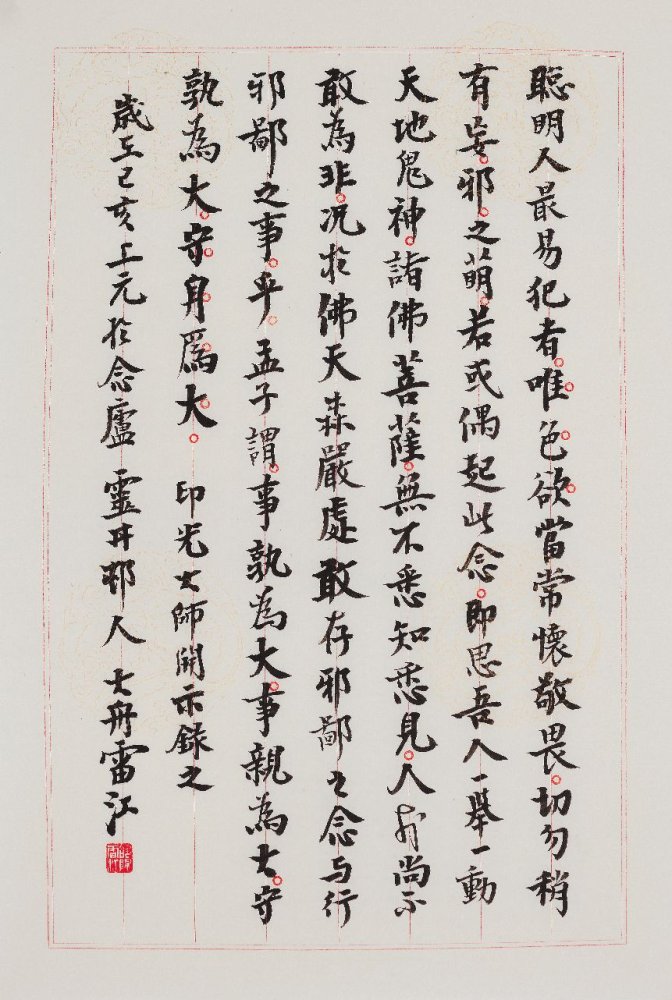 聰明人最易犯者。唯。色。欲。當常懷敬畏。切勿稍
有妄。邪。之萌。若或偶起此念。即思吾人一舉一動
天地鬼神。諸佛菩薩。無不悉知悉見。人前尚不
敢為非。况於佛天森嚴處敢存邪鄙之念与行
邪鄙之事。乎。孟子謂。事孰為大。事親為大。守
孰為大。守。身。爲。大。 印光大師開示錄之
歲在己亥上元於念廬 靈井邨人 大舟雷江